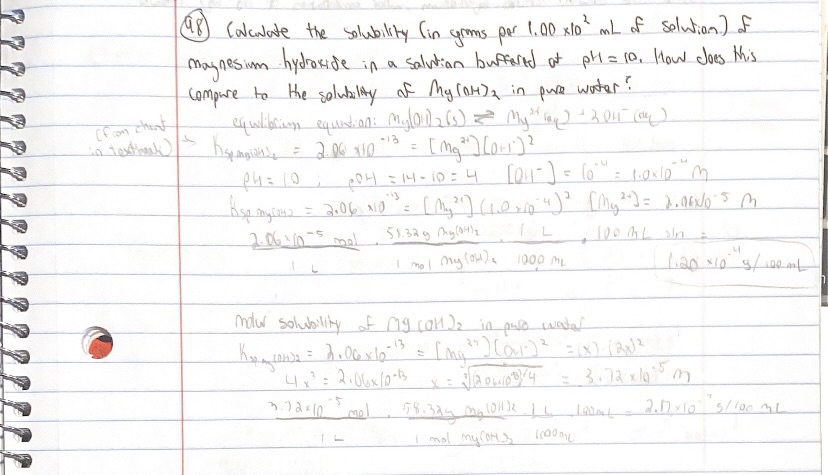 98 Calculate the solubility (in grams per 1.00 x10² mL of solution) of
magnesium hydroxide in a solution buffered at pH = 10. How does this
compare to the solubility of Mg(OH)₂ in pure water?
equilibrium equation: Mg(OH)₂(s) ⇌ Mg²⁺(aq) + 2OH⁻(aq)
(from chart in textbook) → Ksp Mg(OH)₂ = 2.06 x10⁻¹³ = [Mg²⁺][OH⁻]²
pH = 10 ; pOH = 14 - 10 = 4 [OH⁻] = 10⁻⁴ = 1.0x10⁻⁴ M
Ksp Mg(OH)₂ = 2.06 x10⁻¹³ = [Mg²⁺](1.0x10⁻⁴)² [Mg²⁺] = 2.06x10⁻⁵ M
2.06x10⁻⁵ mol . 58.32g Mg(OH)₂ . 1 L . 100 mL =
1 L 1 mol Mg(OH)₂ 1000 mL 1.20 x10⁻⁴ g/100 mL
molar solubility of Mg(OH)₂ in pure water
Ksp Mg(OH)₂ = 2.06x10⁻¹³ = [Mg²⁺][OH⁻]² = (x)·(2x)²
4x³ = 2.06x10⁻¹³ x = = 3.72x10⁻⁵ M
3.72x10⁻⁵ mol . 58.32g Mg(OH)₂ . 1 L . 100mL = 2.17x10⁻⁴ g/100 mL
1 L 1 mol Mg(OH)₂ 1000mL